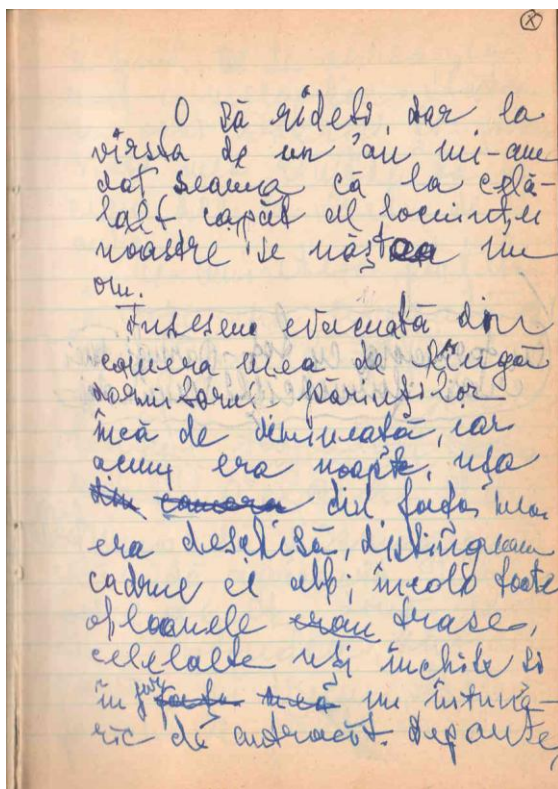 X
O să rîdeți, dar la
vîrsta de un an mi-am
dat seama că la celă-
lalt capăt al locuinței
noastre se năștea un
om.
Fusesem evacuată din
camera mea de lîngă
dormitorul părinților
încă de dimineață, iar
acum era noapte, ușa
din camera din fața mea
era deschisă, distingeam
cadrul ei alb; încolo toate
obloanele erau trase,
celelalte uși închise și
în jur fața mea un întune-
ric de antracit. Departe,